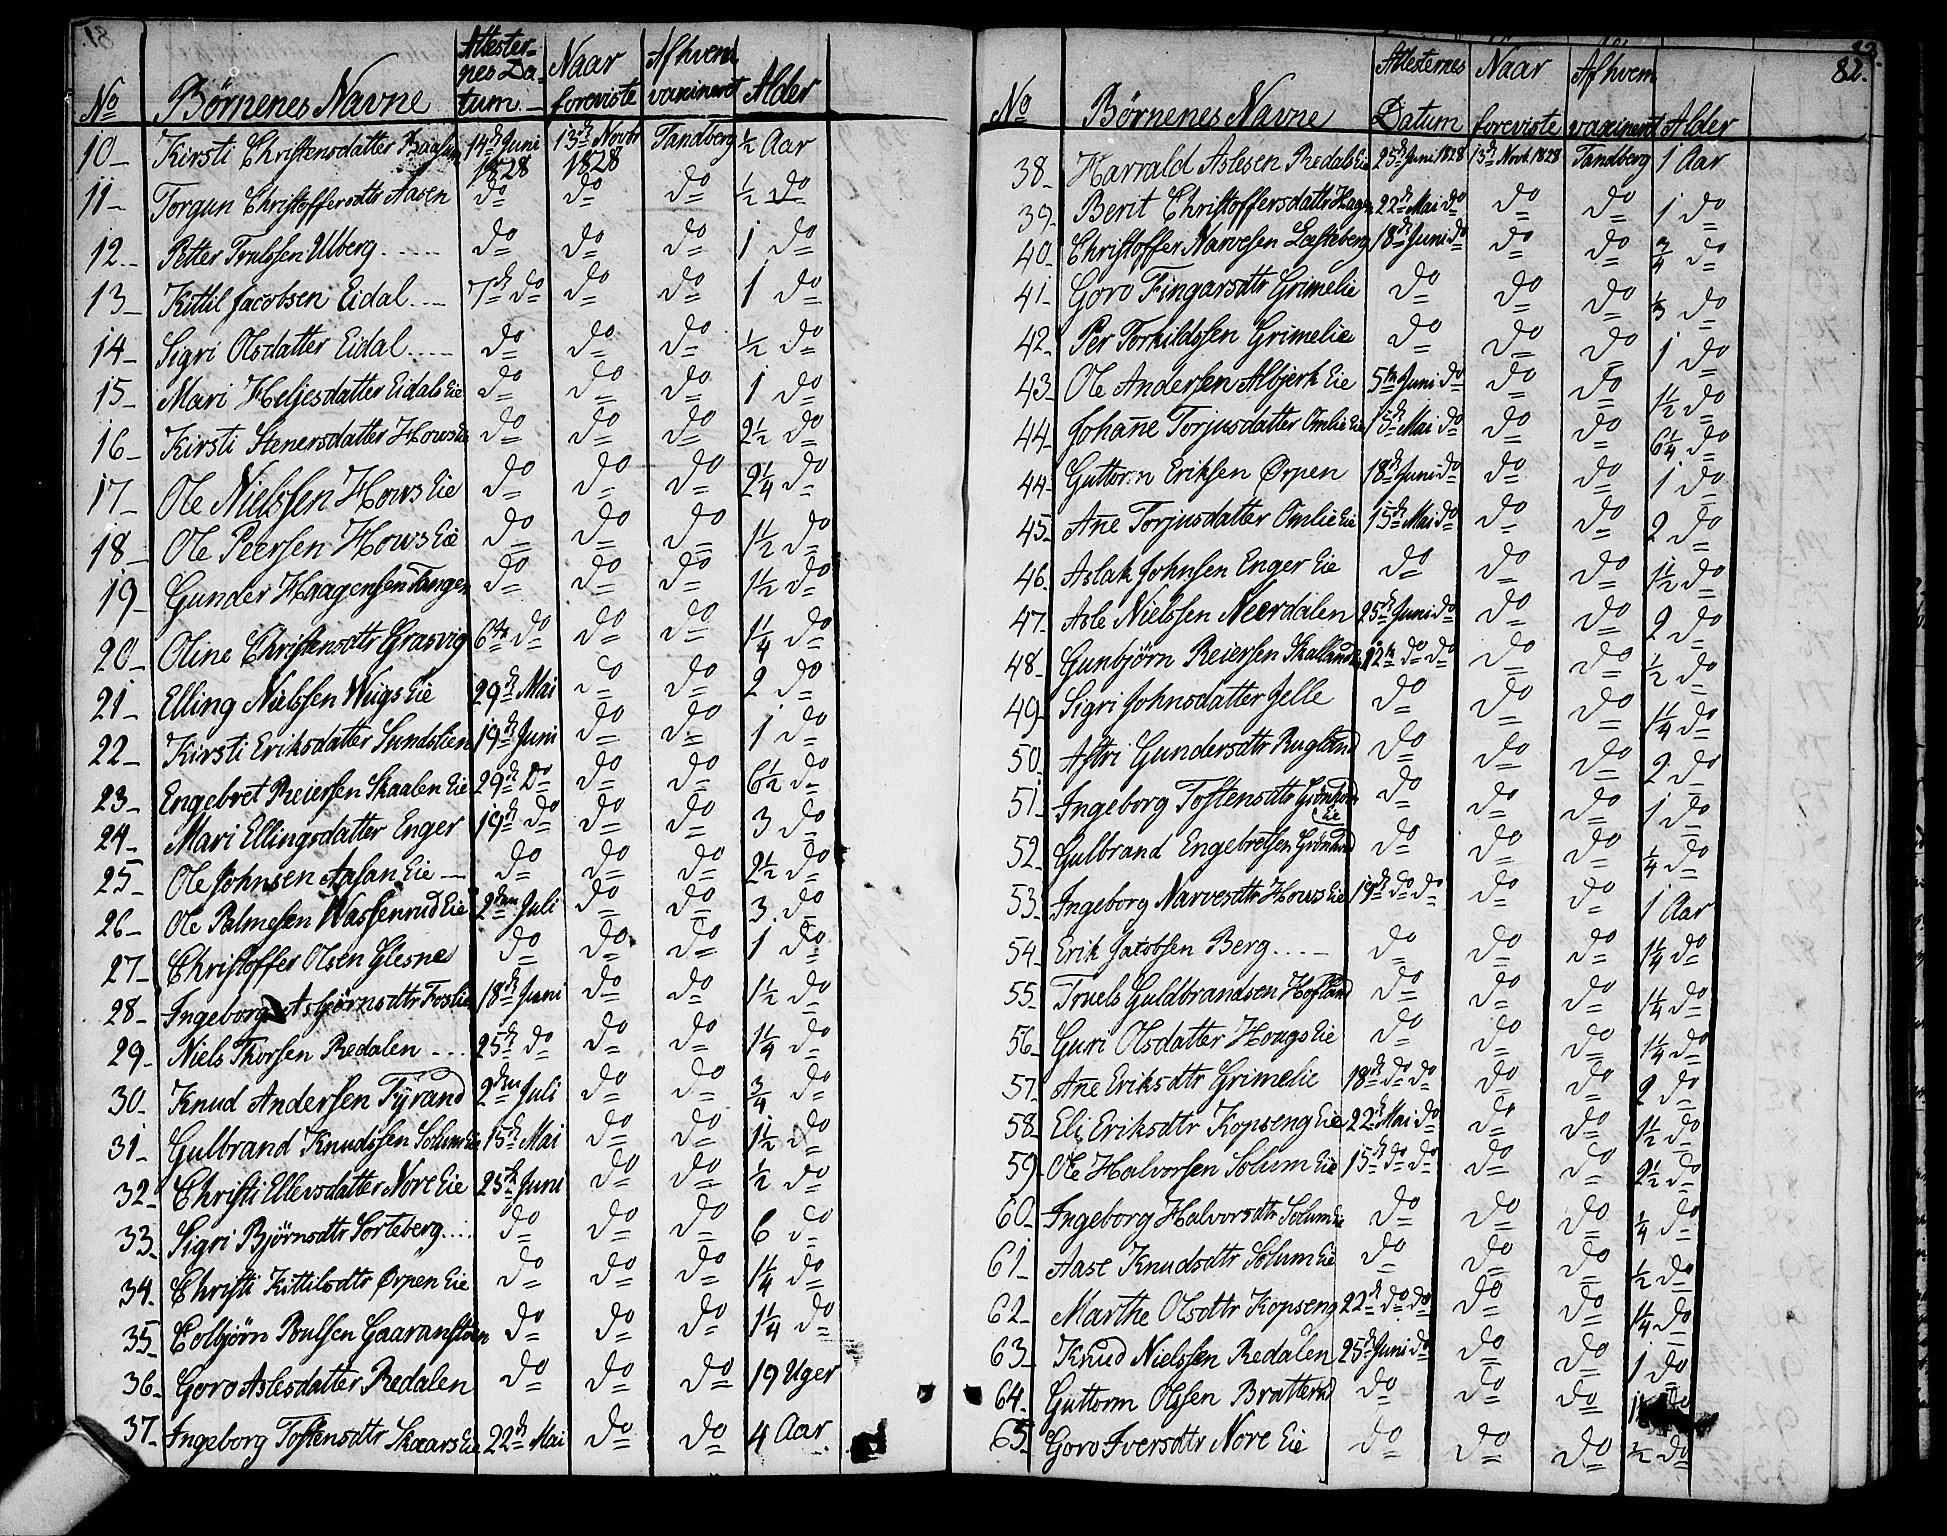 No Børnenes Navne Attester-nes Da-tum. Naar foreviste Af hvem vaxineret Alder
10 Kirsti Christensdatter Haasum 14de Juni 1828 13de Novbr 1828 Tandberg ½ Aar
11 Torgun Christoffersdtr Aasen do do do ½ do
12 Petter Trulssen Ulberg do do do 1 do
13 Kittil Jacobsen Eidal 7de do do do 1 do
14 Sigri Olsdatter Eidal do do do ½ do
15 Mari Heljesdatter Eidals Eie do do do 1 do
16 Kirsti Stenersdatter Hows Eie do do do 2½ do
17 Ole Nielssen Hows Eie do do do 2¼ do
18 Ole Peersen Hows Eie do do do 1½ do
19 Gunder Haagensen Tangen do do do 1½ do
20 Oline Christensdtr Grasvig 6te do do do 1¼ do
21 Elling Nielssen Wiigs Eie 29de Mai do do 2 do
22 Kirsti Eriksdatter Sundstien 19de Juni do do 1 do
23 Engebret Reiersen Skaalen Eie 29de Do do do 6½ do
24 Mari Ellingsdatter Enger 19de do do do 3 do
25 Ole Johnsen Aasan Eie do do do 2½ do
26 Ole Palmesen Wassenrud Eie 2den Juli do do 3 do
27 Christoffer Olsen Glesne do do do 1 do
28 Ingeborg Asbjørnsdtr Foslie 18de Juni do do 1½ do
29 Niels Thorsen Redalen 25de do do do 1¼ do
30 Knud Andersen Tyrand 2den Juli do do ¾ do
31 Gulbrand Knudssen Solum Eie 15de Mai do do 1½ do
32 Christi Ellevsdatter Nore Eie 25de Juni do do ½ do
33 Sigri Bjørnsdtr Sorteberg do do do 6 do
34 Christi Kittilsdtr Ørpen Eie do do do 1¼ do
35 Colbjørn Poulsen Gaaranstøen do do do 1¼ do
36 Goro Aslesdatter Redalen do do do 19 Uger
37 Ingeborg Tostensdtr Skaars Eie 22de Mai do do 4 Aar
82.
No Børnenes Navne Attesternes Datum Naar foreviste Af hvem vaxineret Alder
38 Harrald Aslesen Redals Eie 25de Juni 1828 13de Novb. 1828 Tandberg 1 Aar
39 Berit Christoffersdattr Hagen 22de Mai do do do 1 do
40 Christoffer Narvesen Lesteberg 18de Juni do do do ¾ do
41 Goro Fingarsdtr Grimelie do do do ⅓ do
42 Per Torkildssen Grimelie do do do 1 do
43 Ole Andersen Albjerk Eie 5te Juni do do do 1½ do
44 Johañe Torjusdatter Omlie Eie 15de Mai do do do 6¼ do
44 Guttorm Eriksen Ørpen 18de Juni do do do 1 do
45 Añe Torjusdatter Omlie Eie 15de Mai do do do 2 do
46 Aslak Johnsen Enger Eie do do do 1½ do
47 Asle Nielssen Neerdalen 25de Juni do do do 2 do
48 Gunbjørn Reiersen Skalland 12te do do do do ½ do
49 Sigri Johnsdatter Jelle do do do 1¼ do
50 Astri Gundersdtr Rugland do do do 2 do
51 Ingeborg Tostensdtr Grønhovd Eie do do do 1 do
52 Gulbrand Engebretsen Grønlund do do do ¼ do
53 Ingeborg Narvesdtr Hows Eie 19de do do do do 1 Aar
54 Erik Jacobsen Berg do do do 1¼ do
55 Truels Guldbrandsen Hofland do do do 1¼ do
56 Guri Olsdatter Hougs Eie do do do 1¼ do
57 Añe Eriksdtr Grimelie 18de do do do do 2 do
58 Eli Eriksdtr Kopseng Eie 22de Mai do do do 1½ do
59 Ole Halvorsen Solum Eie 15de do do do do 2½ do
60 Ingeborg Halvorsdtr Solum Eie do do do ¼ do
61 Aase Knudsdtr Solum Eie do do do ½ do
62 Marthe Olsdtr Kopseng 22de do do do do 1¼ do
63 Knud Nielssen Redalen 25de Juni do do do 1 do
64 Guttorm Olssen Bratterud do do do
65 Goro Iversdtr Nore Eie do do do ½ do